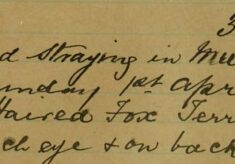 3
d straying in Mu
unday 1st Apr
Haired Fox Terr
ch eye & on back